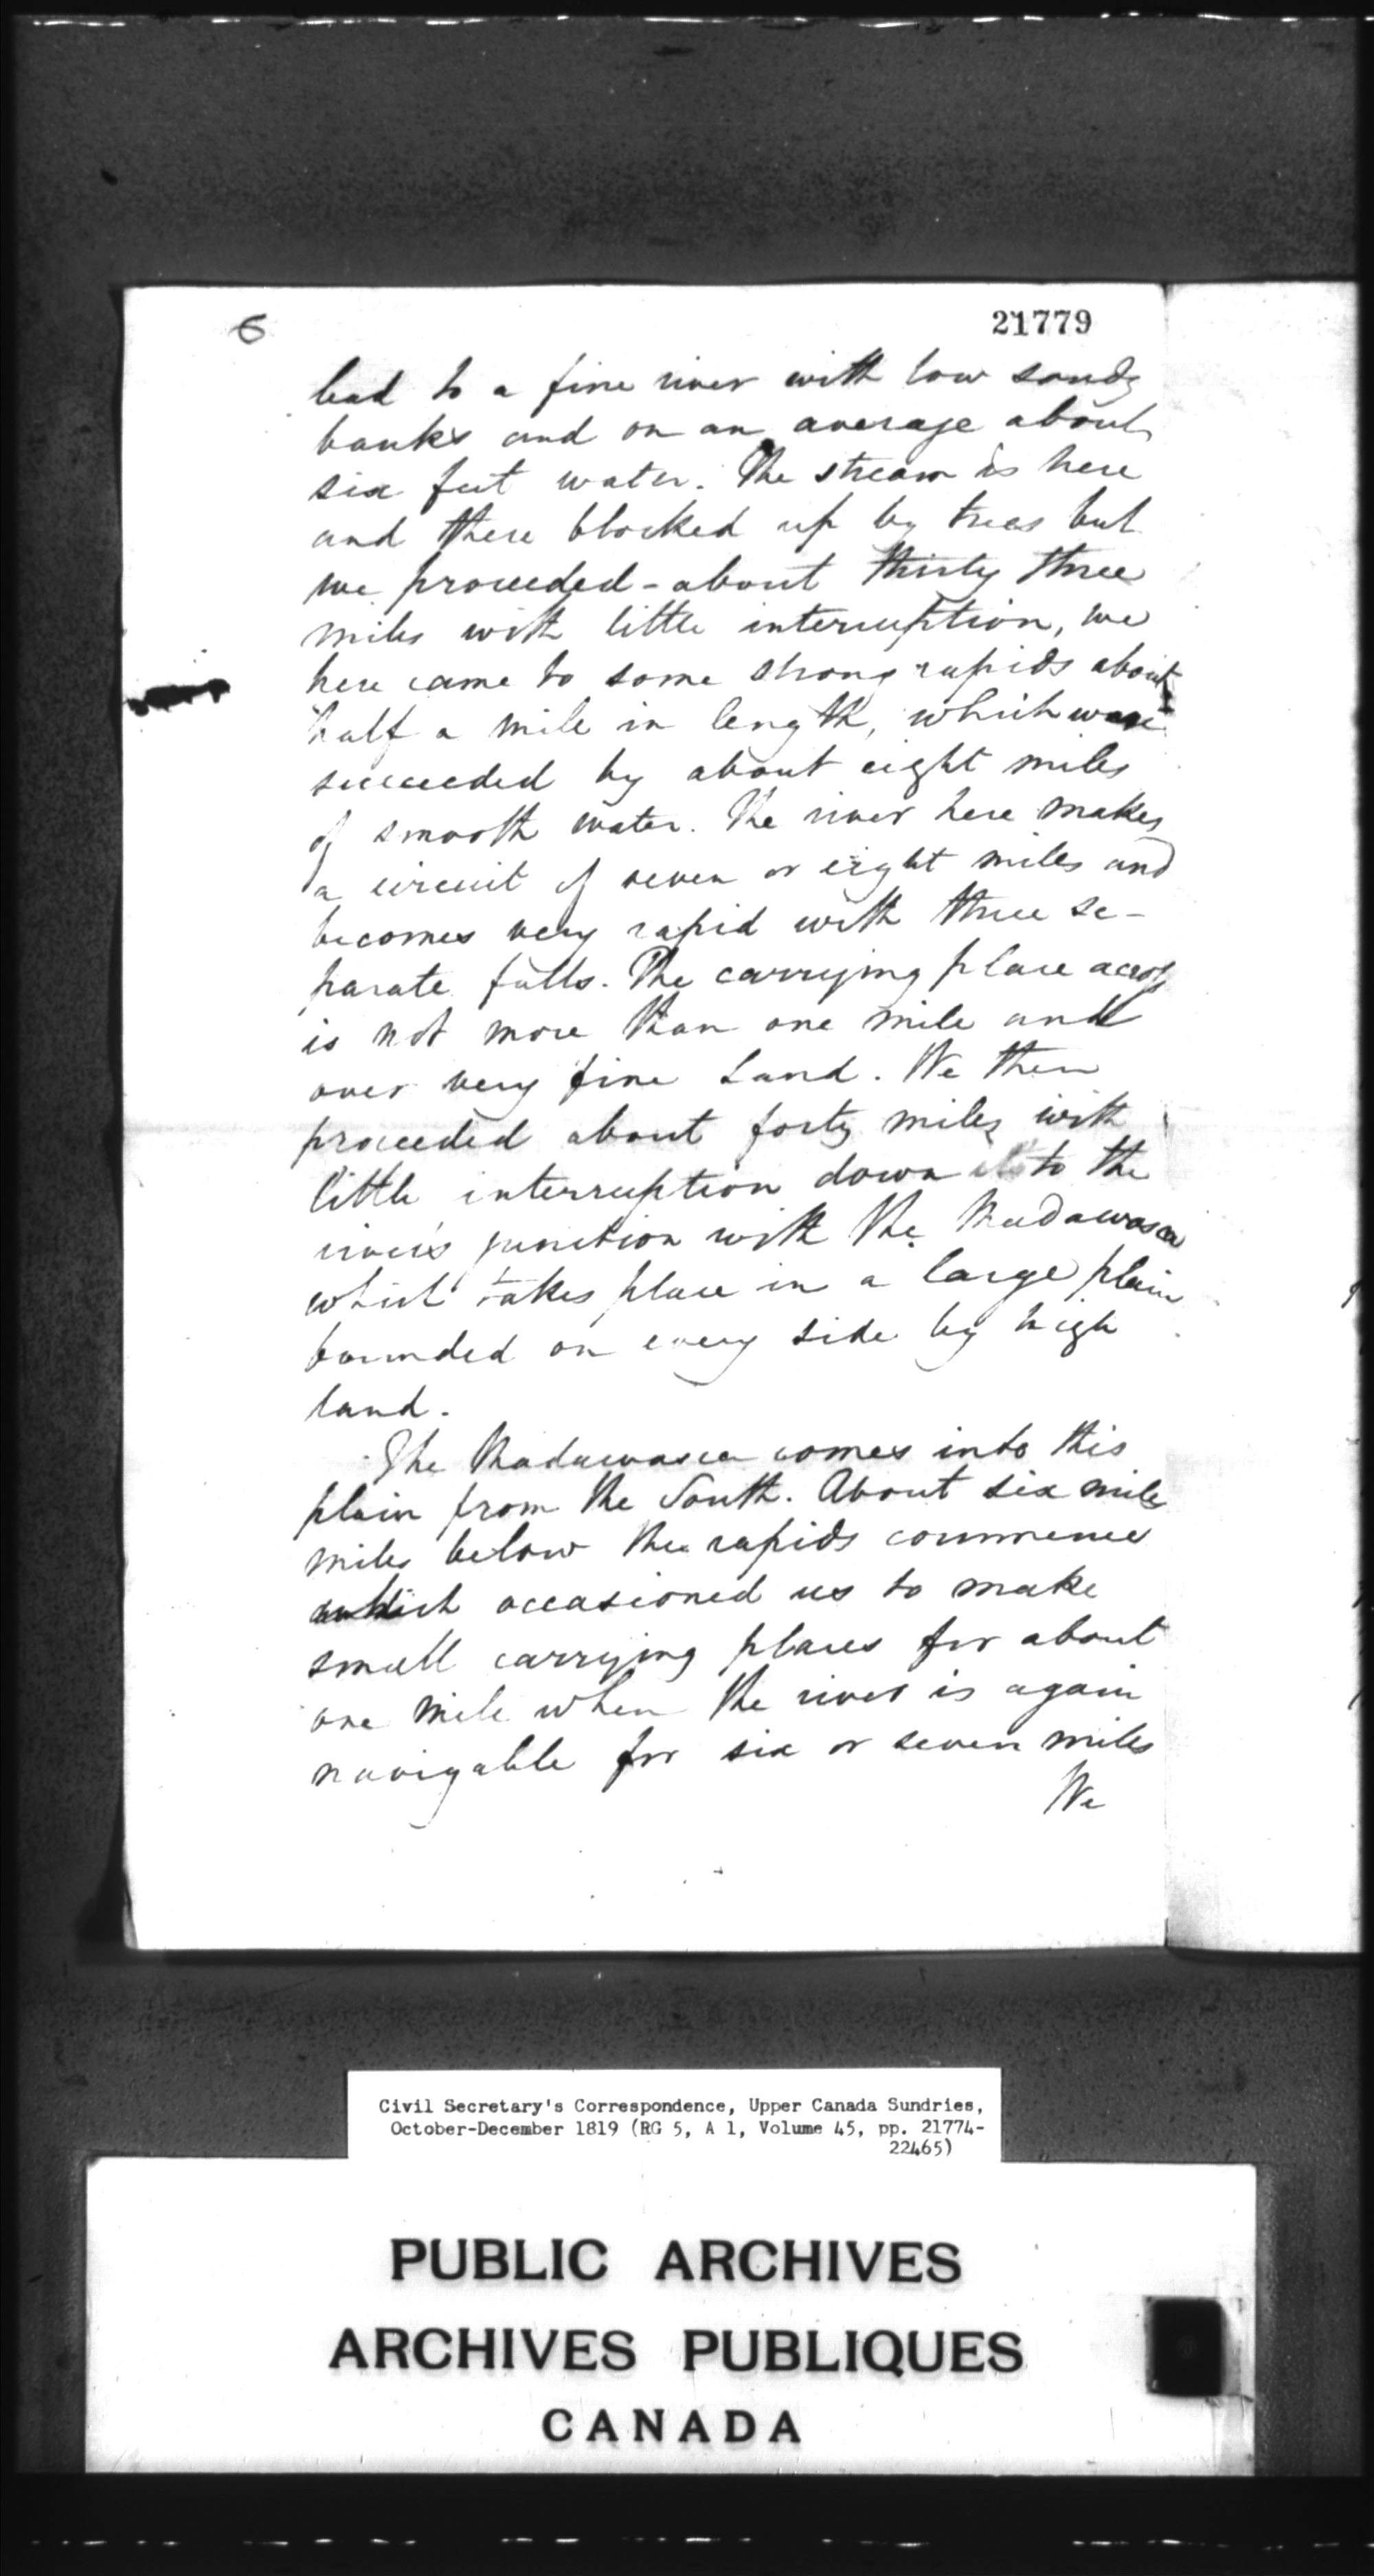 6
21779
lead to a fine river with low sandy
banks and on an average about
six feet water. The stream is here
and there blocked up by trees but
we proceeded - about thirty three
miles with little interruption, we
here came to some strong rapids about
half a mile in length, which were
succeeded by about eight miles
of smooth water. The river here makes
a circuit of seven or eight miles and
becomes very rapid with three se-
parate falls. The carrying place across
is not more than one mile and
over very fine Land. We then
proceeded about forty miles with
little interruption down to the
river's junction with the Madawasca
which takes place in a large plain
bounded on every side by high
land.
The Madawasca comes into this
plain from the South. About six mile
miles below the rapids commence
which occasioned us to make
small carrying places for about
one mile when the river is again
navigable for six or seven miles
We
Civil Secretary's Correspondence, Upper Canada Sundries,
October-December 1819 (RG 5, A 1, Volume 45, pp. 21774-
22465)
PUBLIC ARCHIVES
ARCHIVES PUBLIQUES
CANADA